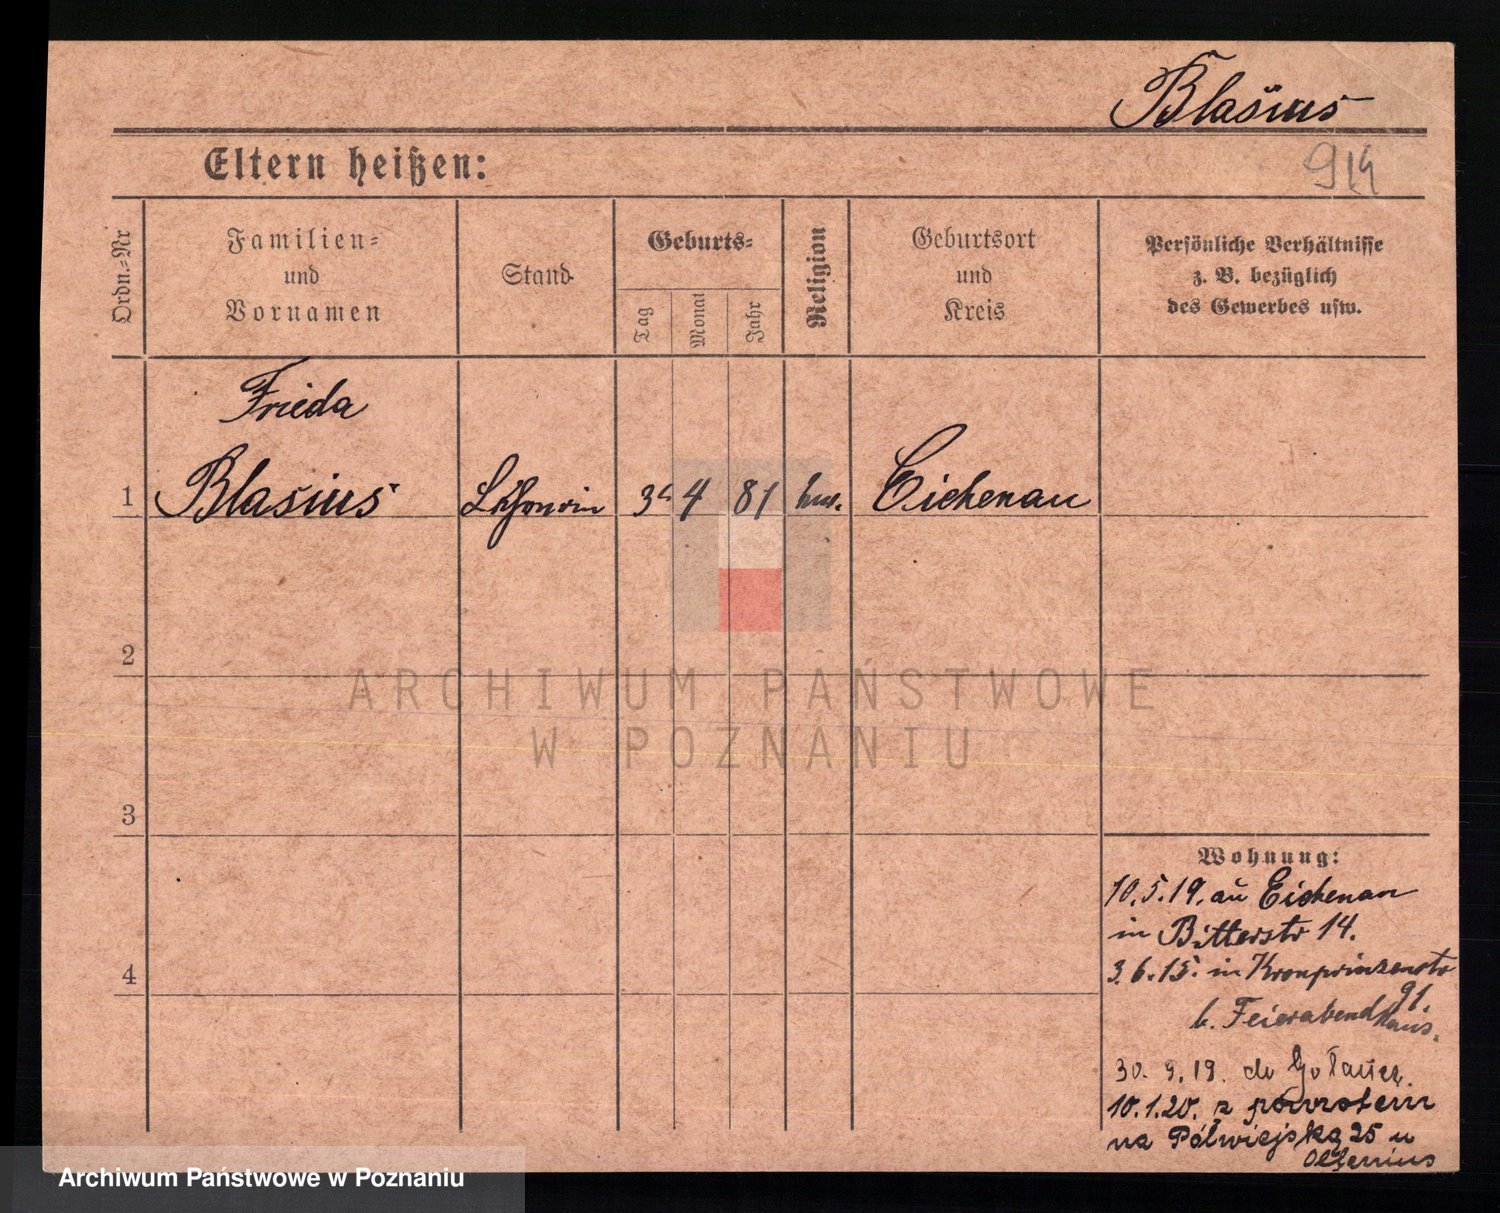 Blasius
Eltern heißen:
914
Ordn.-Nr
Familien-
und
Vornamen
Stand
Geburts-
Tag
Monat
Jahr
Religion
Geburtsort
und
Kreis
Persönliche Verhältnisse
z. B. bezüglich
des Gewerbes usw.
Frieda
1 Blasius 4 81 Eichenau
2
3
4
ARCHIWUM PAŃSTWOWE
W POZNANIU
Wohnung:
10.5.19. aŭ Eichenau
in Bitterstr 14.
3.6.15. in Kronprinzenstr
91.
b. Feierabendhaus.
30. 9. 19. do
10.1.20. z powrotem
na Półwiejską 25 u
Archiwum Państwowe w Poznaniu